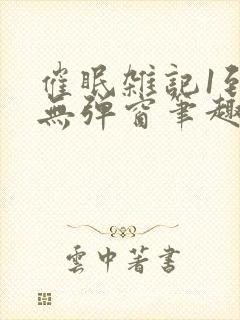 催眠雑記1至
無弹窗筆趣
雲中著書